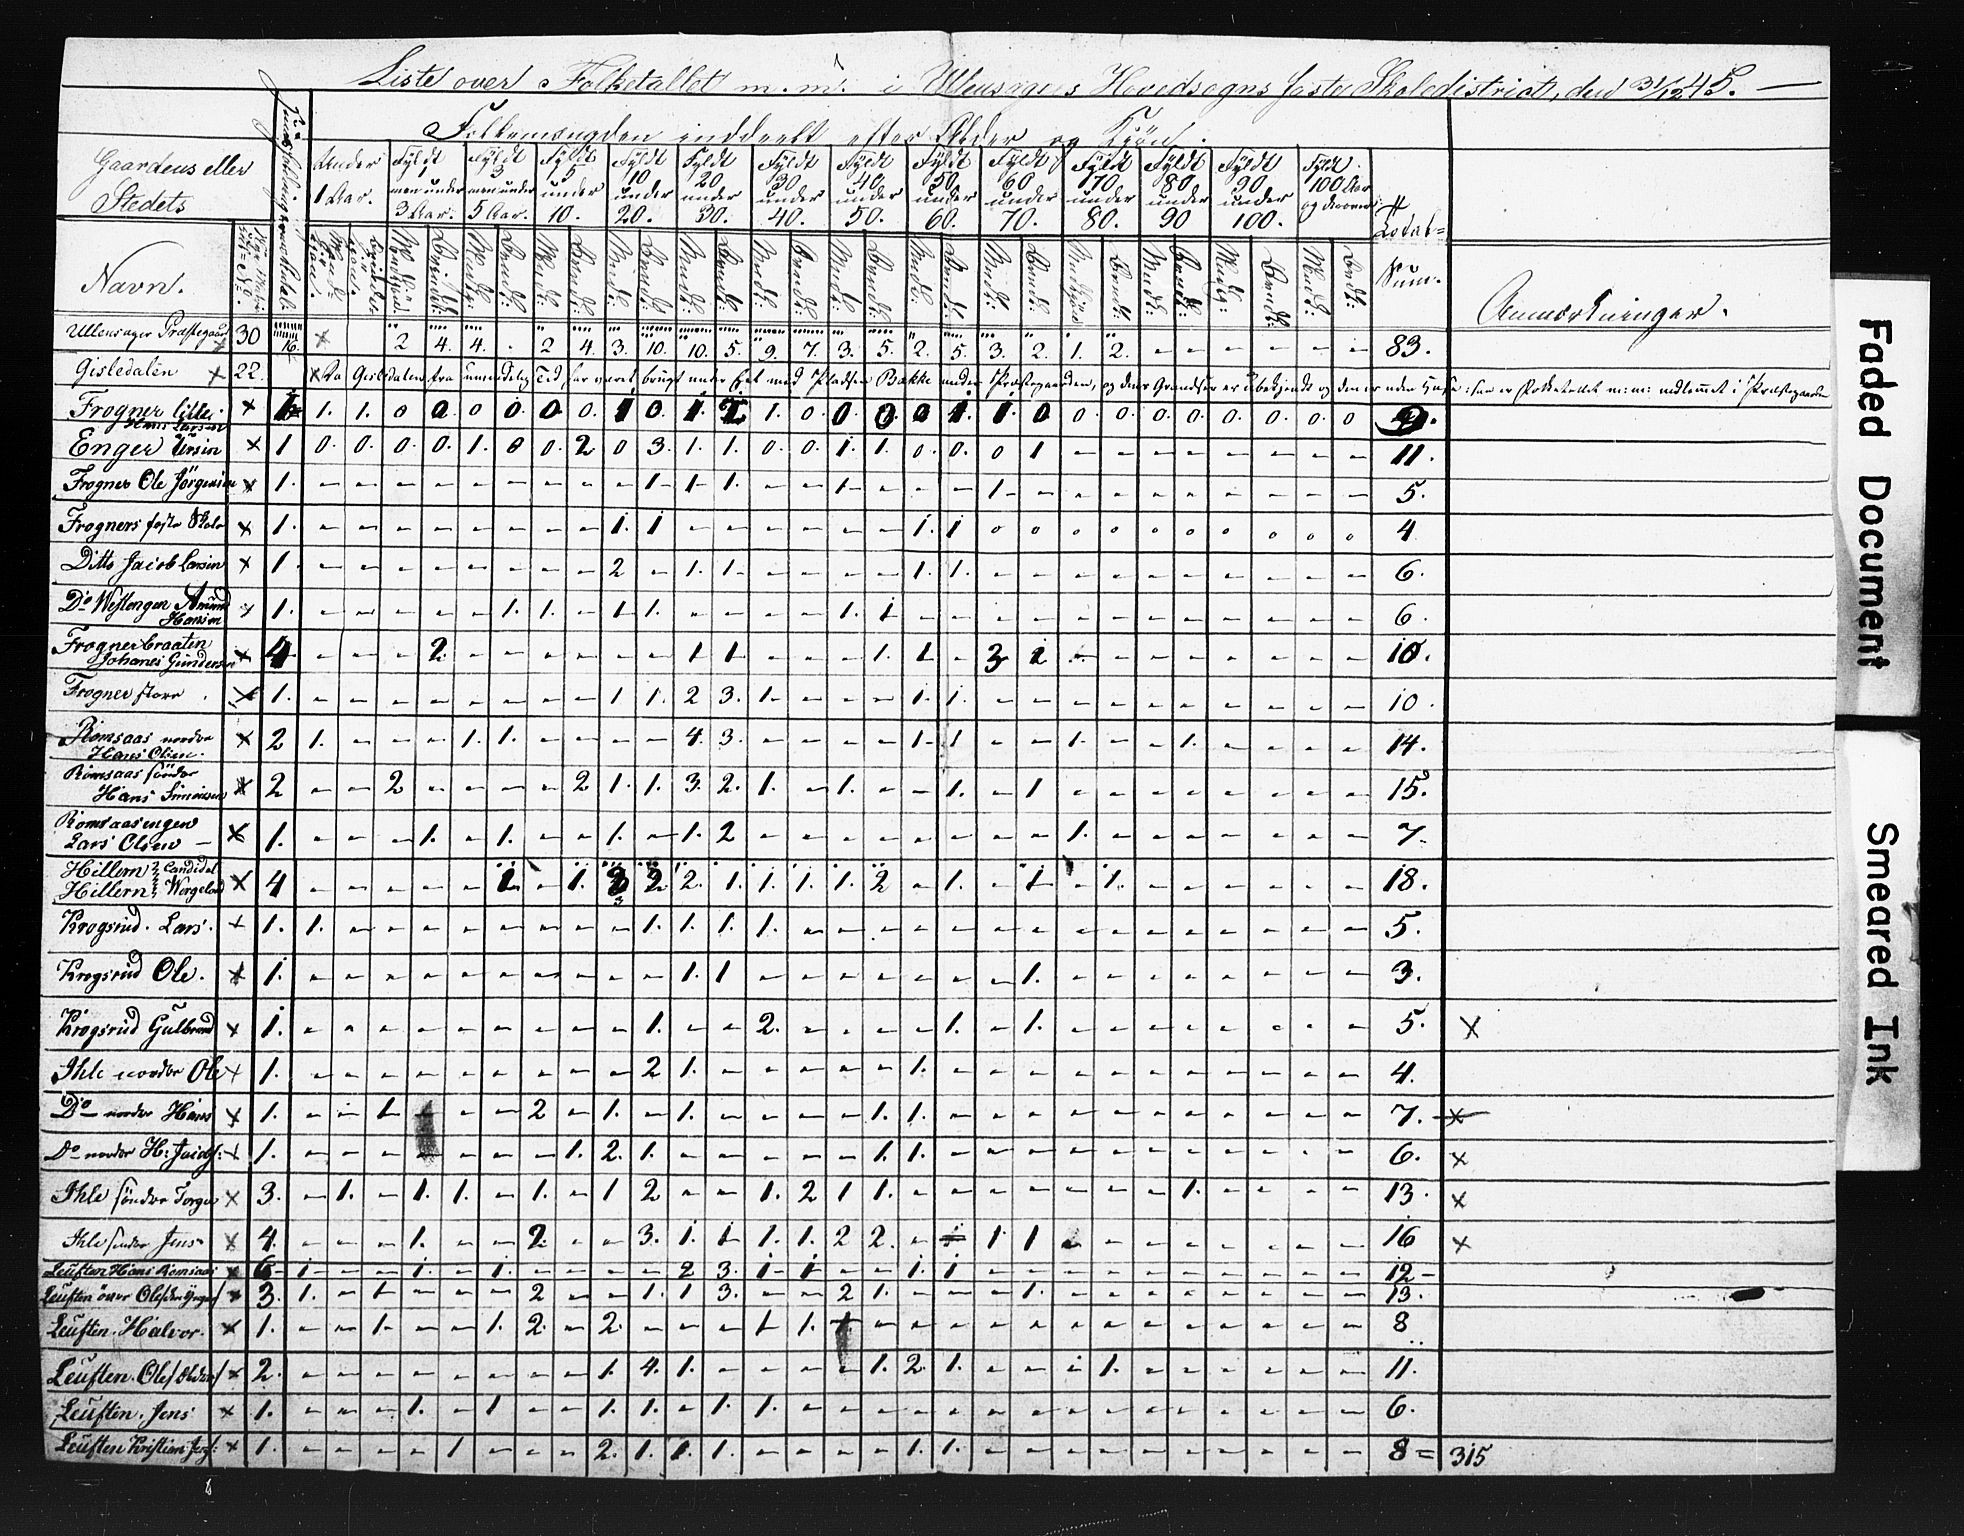 Liste over Folketallet m. m. i Ullensagers Hovedsogns faste Skoledistrict, den 31/12 45.
Folkemængden inddeelt efter Alder og Kjön.
Gaardens eller Stedets
Navn.
Under 1 Aar.
Fyldt 1 men under 3 Aar.
Fyldt 3 men under 5 Aar.
Fyldt 5 under 10.
Fyldt 10 under 20.
Fyldt 20 under 30.
Fyldt 30 under 40.
Fyldt 40 under 50.
Fyldt 50 under 60.
Fyldt 60 under 70.
Fyldt 70 under 80.
Fyldt 80 under 90
Fyldt 90 under 100.
Fyldt 100 Aar og derover
Total= Sum.
Anmærkninger.
Ullensager Præstegaard 30 16 2 4. 4. 2 4. 3. 10. 10. 5. 9. 7. 3. 5. 2. 5. 3. 2. 1. 2. 83.
Gisledalen x 22. x Da Gisledalen fra umindelig Tid har været brugt under Eet med Pladsen Bække under Præstegaarden, og dens Grændser er ubekjendt
Frogner lille Hans Larsen x 1 1. 1. 0 0. 0 0. 0. 0. 1 0. 1 1 1. 0. 0 0 0 1 1 0 0 0. 0. 0. 0. 0. 0. 0
Enger x 1 0. 0. 0. 0. 1. 0 0. 2 0 3. 1. 1. 0. 0. 1 1. 0. 0. 0 1 11.
Frogner Ole Jörgensen x 1. 1. 1 1. 1 1 5.
Frogners faste Skole x 1. 1. 1 1. 1 0 0 0 0 0 0 0 0 0 0 4
Ditto Jacob Larsen x 1. 2 1. 1 1. 1. 6.
Do Westengen Amund Hansen 1. 1. 1. 1 1. 1. 1 6.
Frogner braaten Johanes Gundersen x 4 2 1 1. 1. 1. 3 1 10.
Frogner store x 1. 1 1. 2 3. 1. 1 1. 10.
Romsaas nordre Hans Olsen x 2 1. 1. 1. 4. 3. 1. 1 1. 1. 14.
Romsaas söndre Hans Simensen x 2 2 2 1. 1. 3. 2. 1. 1. 1. 1 15.
Romsaasengen Lars Olsen x 1. 1. 1. 1. 1. 2 1. 7.
Hillern Candidat
Hillern Wergeland x 4 1 1. 3 2 2. 1. 1. 1. 1. 2 1. 1 1. 18.
Krogsrud Lars x 1. 1. 1. 1. 1. 1. 5.
Krogsrud Ole. x 1. 1. 1 1. 3.
Krogsrud Gulbrand x 1. 1. 2. 1. 1. 5. x
Ihle nordre Ole x 1. 2 1. 1. 4.
Do nordre Hans x 1. 1 2 1. 1. 1. 1. 7. x
Do nordre H: Jacobs: x 1. 1. 2. 1. 1. 1. 6. x
Ihle söndre x 3. 1. 1. 1. 1. 1 2 1. 2 1 1. 1. 13. x
Ihle söndre Jens x 4. 1. 2. 3. 1. 1 1. 1. 2 2. 1 1 16 x
Leuften Hans Romsaas x 1 1 1. 2 3. 1 1 1. 1 12
Leuften Ole x 3. 1. 1 2 1. 1 3. 2 1. 1. 13.
Leuften Halvor. x 1. 1 1. 2. 2. 1 1. 8
Leuften Ole x 2. 1. 4. 1. 1. 2 1. 1. 11.
Leuften Jens x 1. 1. 1 1. 1. 1. 1. 6.
Leuften Kristian x 1. 1 2. 1. 1. 1. 1. 1. 8 = 315
Faded Document
Smeared Ink